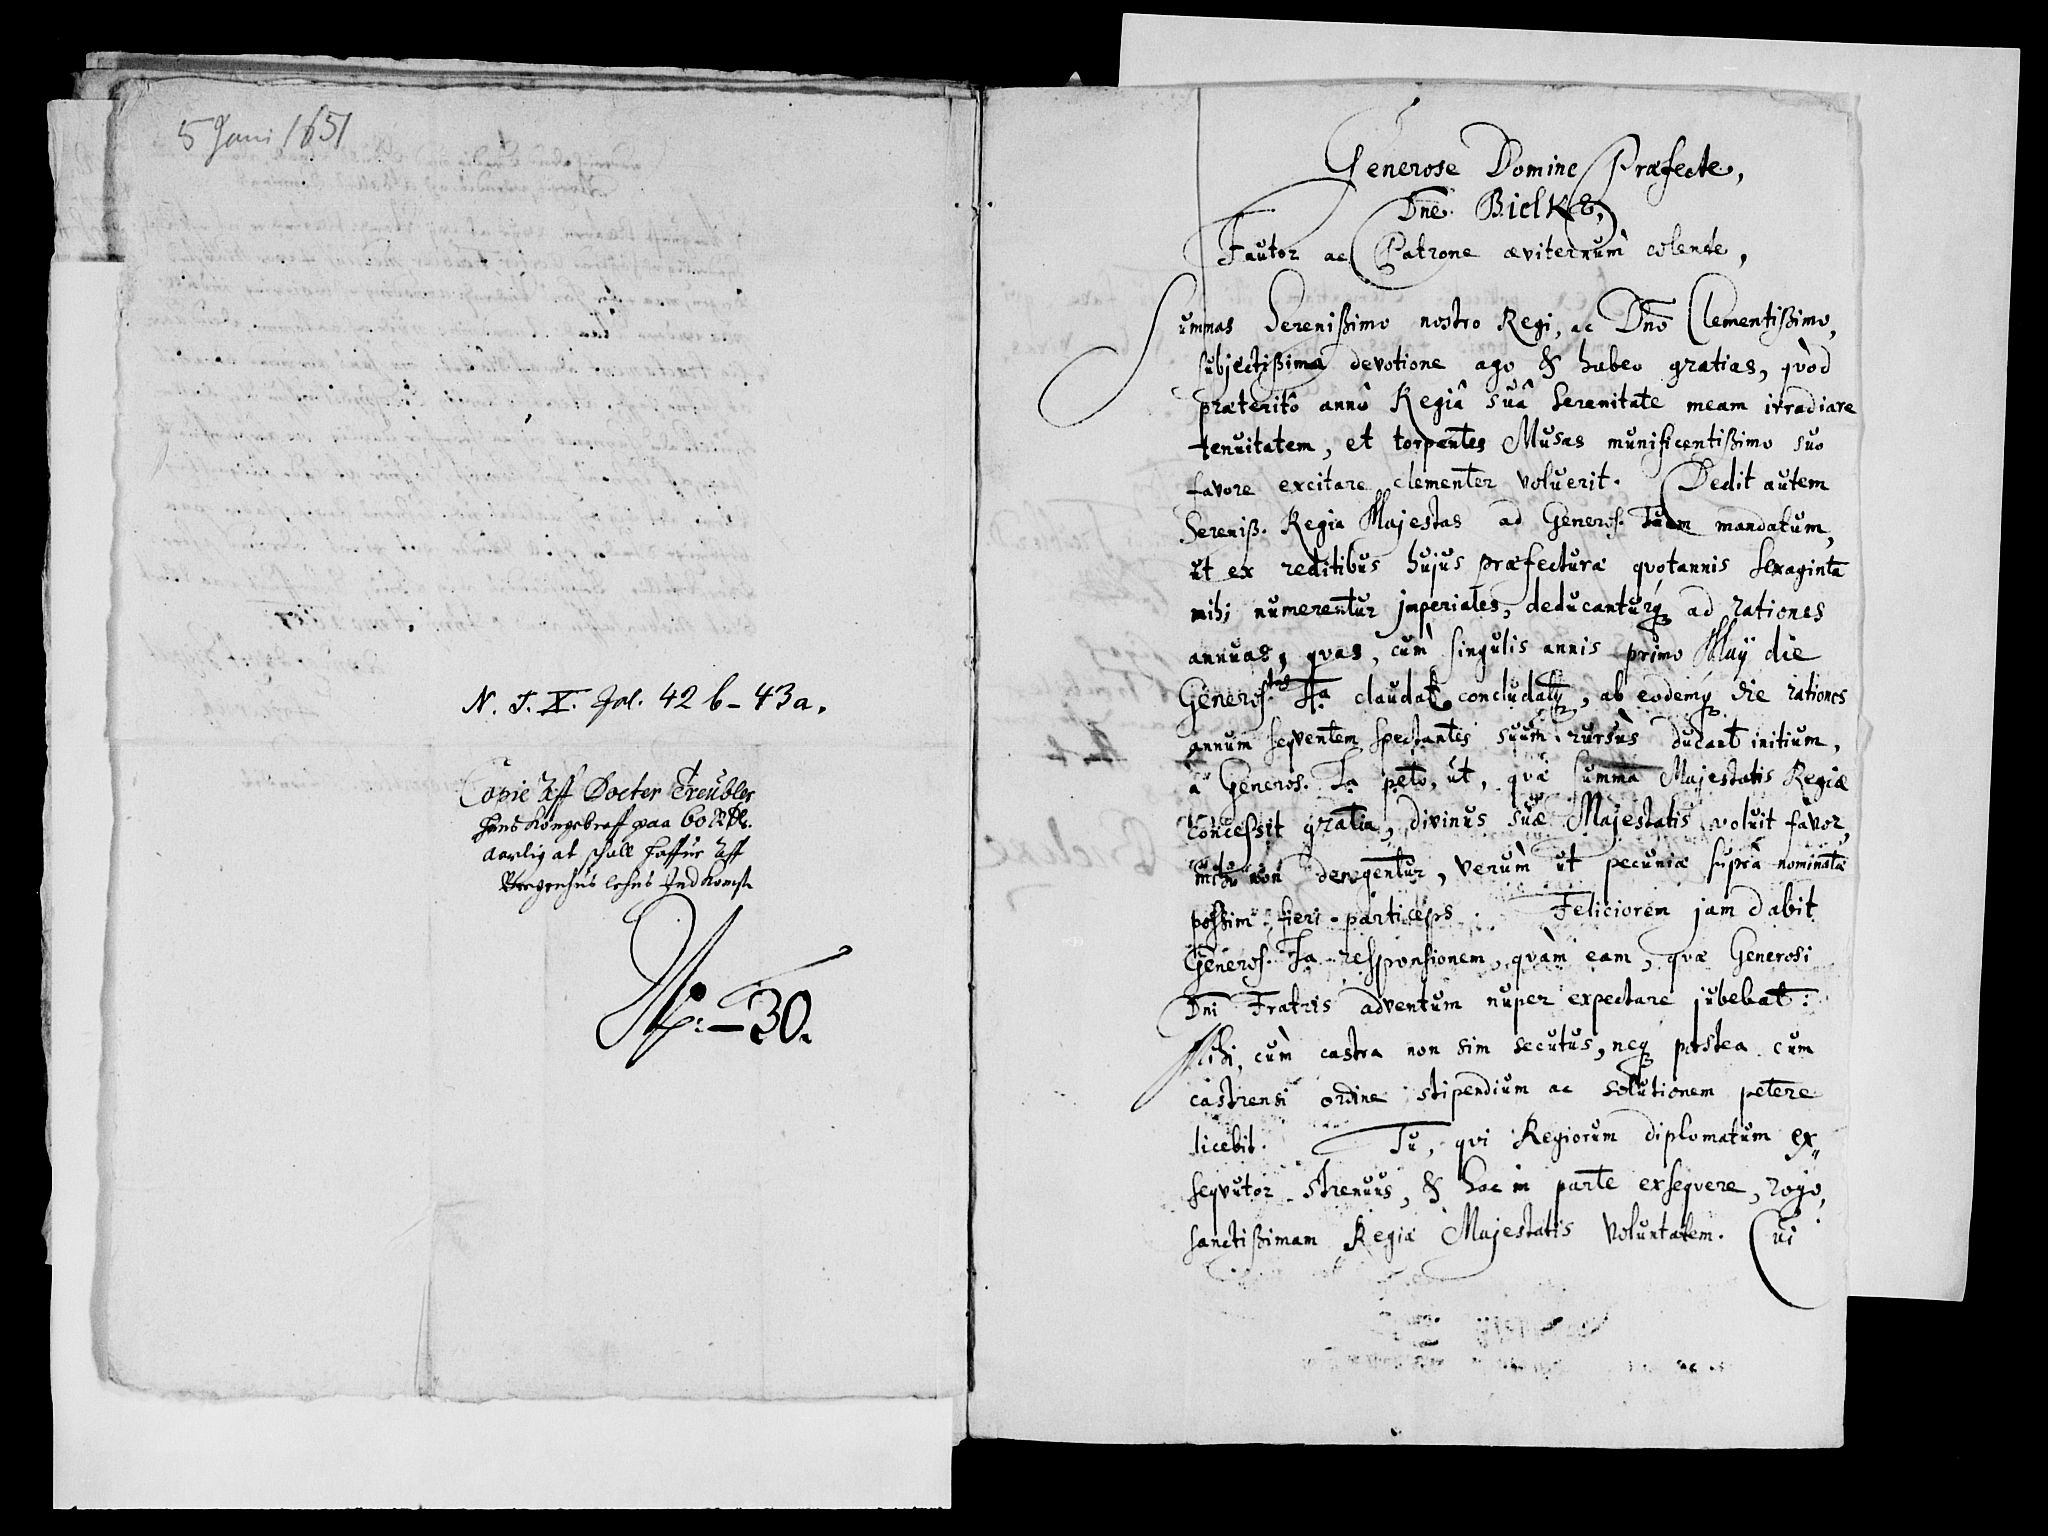 5 Juni 1651
N. T. X. Fol. 42 b – 43 a.
Copie Aff Docter Treubler
hans Kongebreff paa 60 Rdr.
Aarlig at schall haffue Aff
Bergenhus lehns Indkomst
N: – 30.
Generose Domine Præfecte,
Dnē. Bielke,
Fautor ac Patrone æviternùm colende,
Summas Serenißimo nostro Regi, ac Dn̄o Clementißimo,
subjectißima devotione ago & habeo gratias, qvòd
præteritô annô Regiâ suâ Serenitate meam irradiare
tenuitatem, et torpentes Musas munificentißimo suo
favore excitare clementer voluerit. Dedit autem
Sereniß. Regia Majestas ad Generos. Tuam mandatum,
ut ex reditibus hujus præfecturæ qvotannis sexaginta
mihi numerentur imperiales, deducanturq; ad rationes
annuas, qvas, cùm singulis annis primo Maij die
Generos.tas Ta claudat concludatq;, ab eodemq; die rationes
annum seqventem spectantes suum rursùs ducant initium,
à Generos. Ta peto, ut, qvæ summa Majestatis Regiæ
concessit gratia, divinus suæ Majestatis voluit favor,
mihi non denegentur, verùm ut pecuniæ suprà nominatæ
possim fieri particeps. Feliciorem jam dabit
Generos. Ta responsionem, qvàm eam, qvæ Generosi
Dn̄i Fratris adventum nuper expectare jubebat:
Mihi, cùm castra non sim secutus, neq; postea cum
castrensi ordine stipendium ac solutionem petere
licebit. Tu, qvi Regiorum diplomatum ex„
seqvutor strenuus, & hac in parte exseqvere, rogo,
sanctißimam Regiæ Majestatis voluntatem. Cui